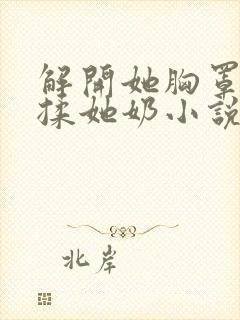 解開她胸罩
揉她奶小說
北岸